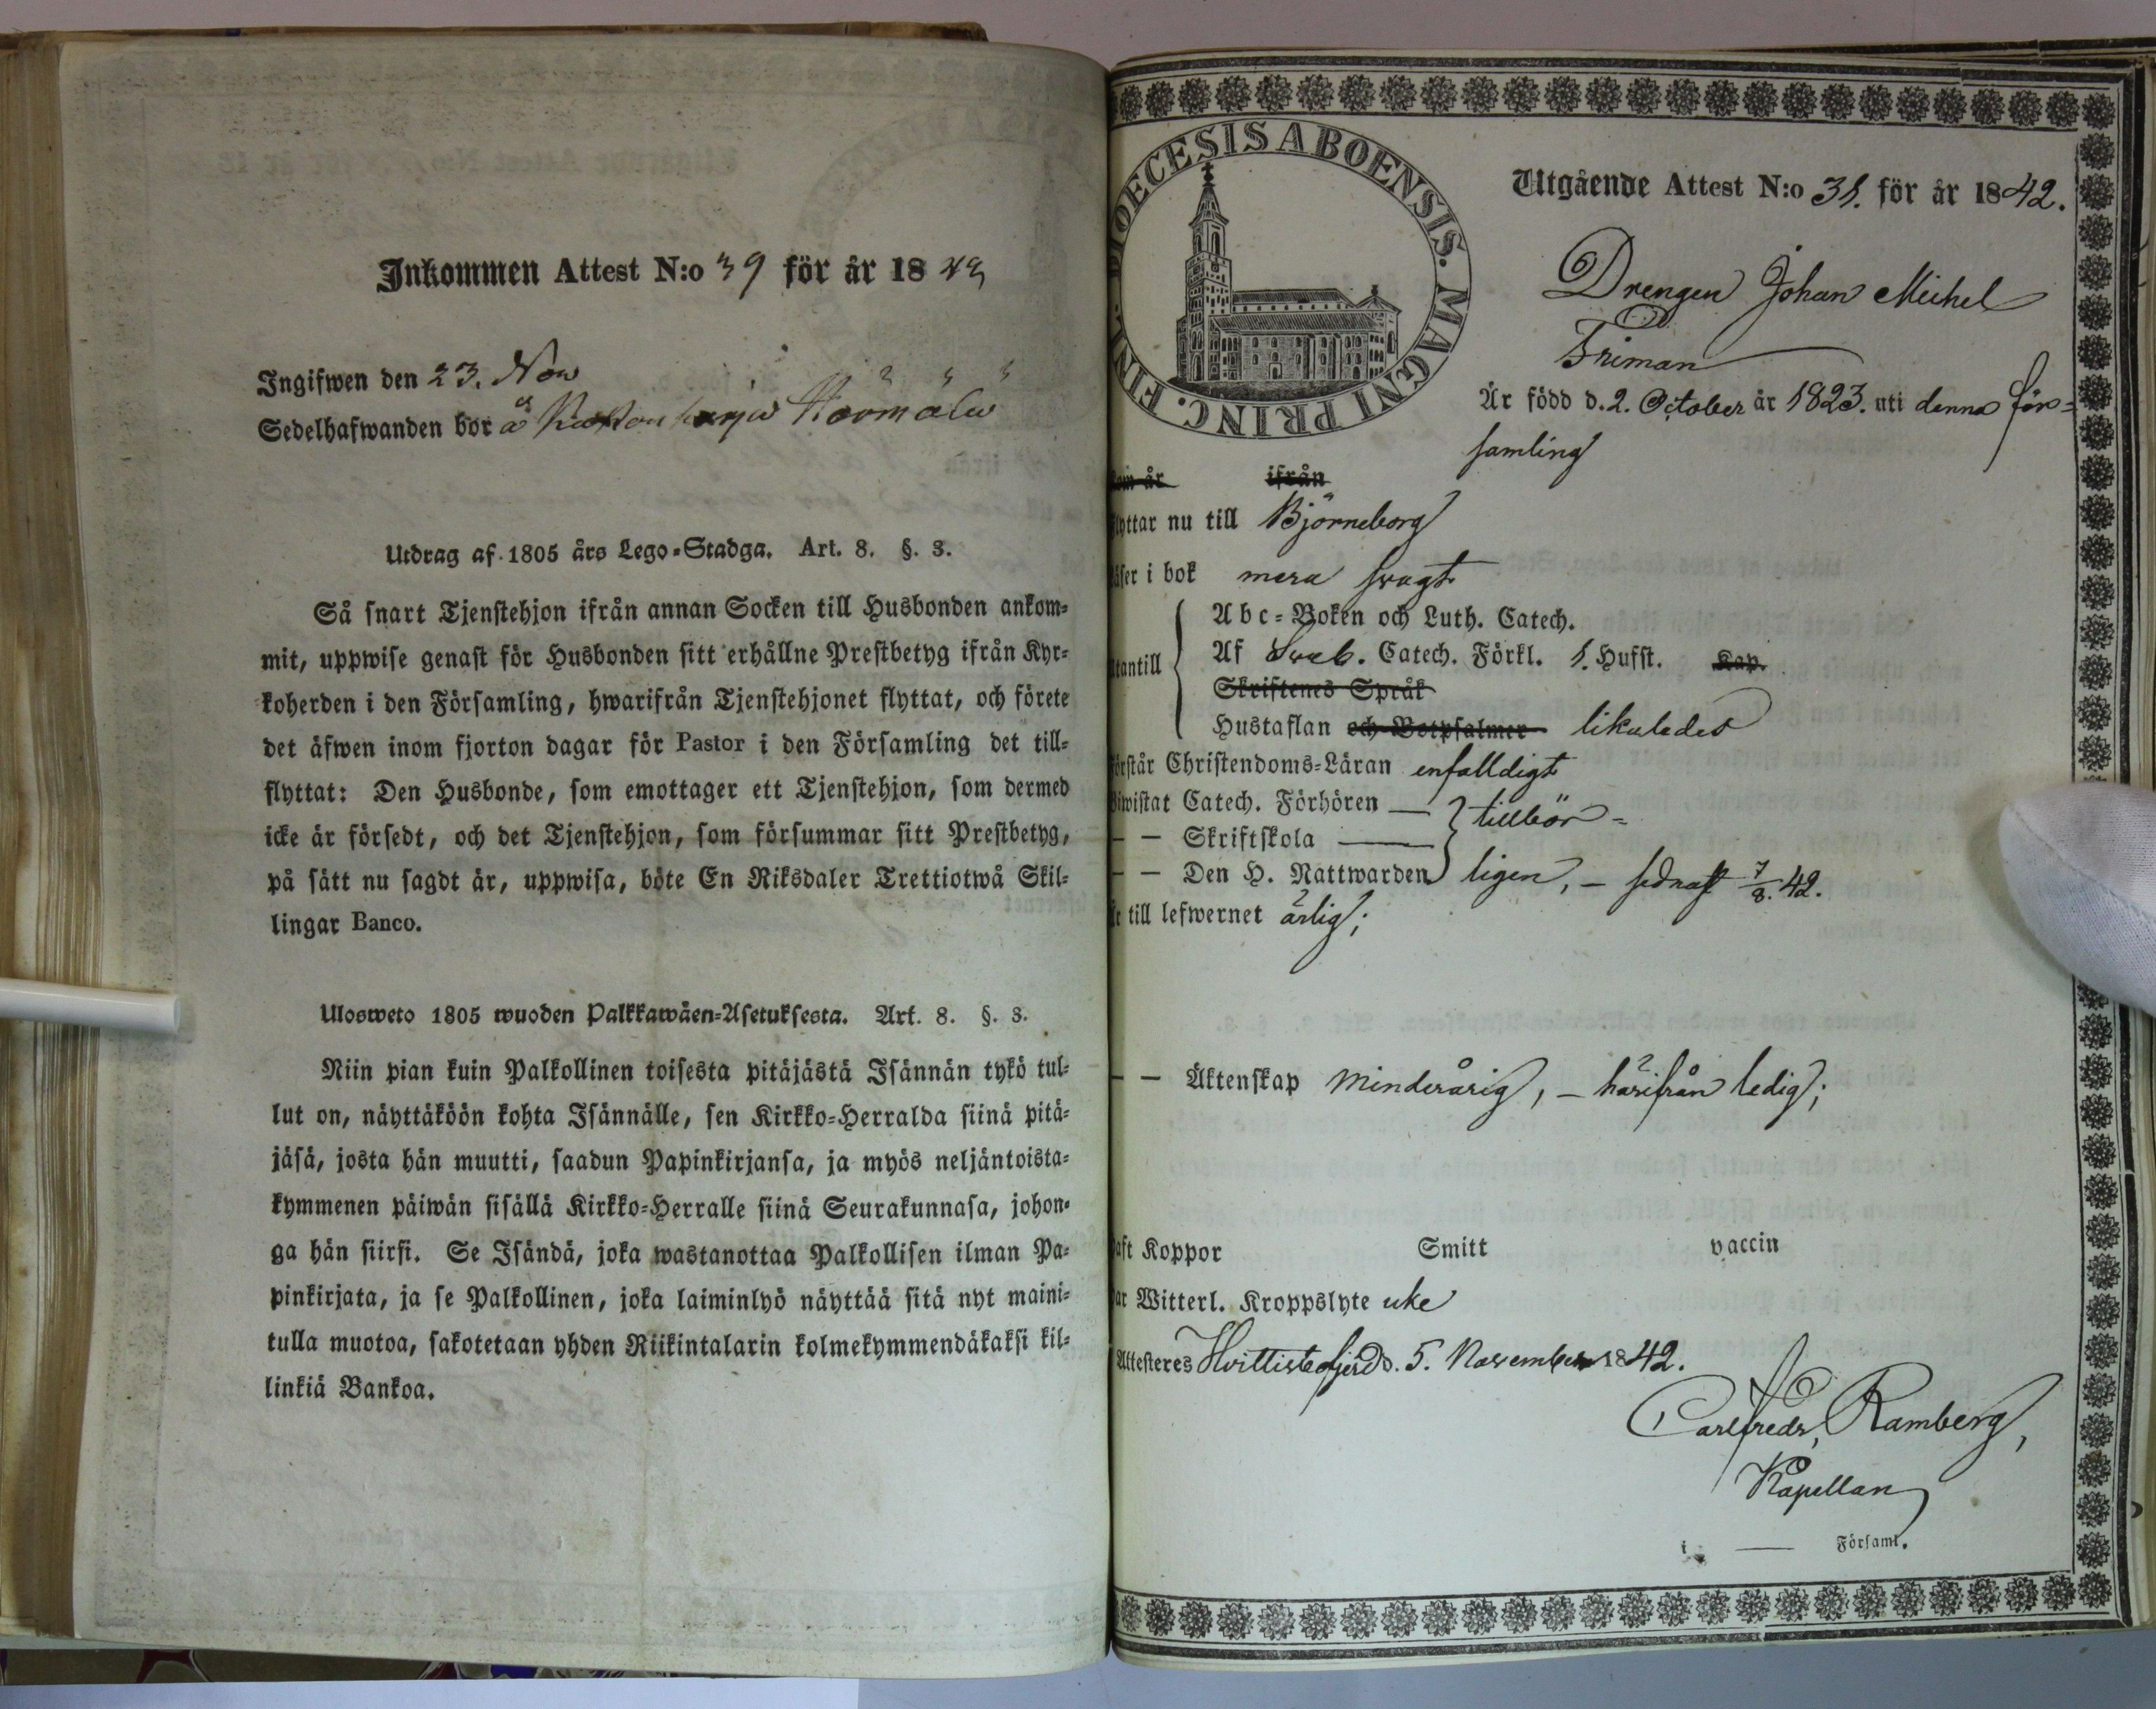 Inkommen Attest N:o 39 för år 1842
Ingifwen den 23. Nov
Sedelhafwanden bor å
Utdrag af 1805 års Lego-Stadga. Art. 8. §. 3.
Så snart Tjenstehjon ifrån annan Socken till Husbonden ankom-
mit, uppwise genast för Husbonden sitt erhållne Prestbetyg ifrån Kyr-
koherden i den Församling, hwarifrån Tjenstehjonet flyttat, och förete
det äfwen inom fjorton dagar för Pastor i den Församling det till-
flyttat: Den Husbonde, som emottager ett Tjenstehjon, som dermed
icke är försedt, och det Tjenstehjon, som försummar sitt Prestbetyg,
på sätt nu sagdt är, uppwisa, böte En Riksdaler Trettiotwå Skil-
lingar Banco.
Ulosweto 1805 wuoden Palkkawäen-Asetuksesta. Art. 8. §. 3.
Niin pian kuin Palkollinen toisesta pitäjästä Isännän tykö tul-
lut on, näyttäköön kohta Isännälle, sen Kirkko-Herralda siinä pitä-
jäsä, josta hän muutti, saadun Papinkirjansa, ja myös neljäntoista-
kymmenen päiwän sisällä Kirkko-Herralle siinä Seurakunnasa, johon-
ga hän siirsi. Se Isändä, joka wastanottaa Palkollisen ilman Pa-
pinkirjata, ja se Palkollinen, joka laiminlyö näyttää sitä nyt maini-
tulla muotoa, sakotetaan yhden Riikintalarin kolmekymmendäkaksi kil-
linkiä Bankoa.
DIOECESIS ABOENSIS. MAGNI PRINC. FINL.
Utgående Attest N:o 31. för år 1842.
Drengen Johan Michel
Friman
Är född d. 2. October år 1823. uti denna för-
samling
kom år ifrån
flyttar nu till Björneborg
läser i bok mera swagt
utantill
Abc-Boken och Luth. Catech.
Af Sveb. Catech. Förkl. 1. Hufst. Kap.
Skriftenes Språk
Hustaflan och Botpsalmer likaledes
förstår Christendoms-Läran enfalldigt
Biwistat Catech. Förhören — tillbör-
— — Skriftskola —
— — Den H. Nattwarden ligen, — sednast 7/8. 42.
Är till lefwernet ärlig;
— — Äktenskap minderårig, — härifrån ledig;
haft Koppor Smitt vaccin
har Witterl. Kroppslyte icke
Attesteres Hvittisbofjerd d. 5. November 1842.
Carl Fredr. Ramberg,
Kapellan
i — Församl.